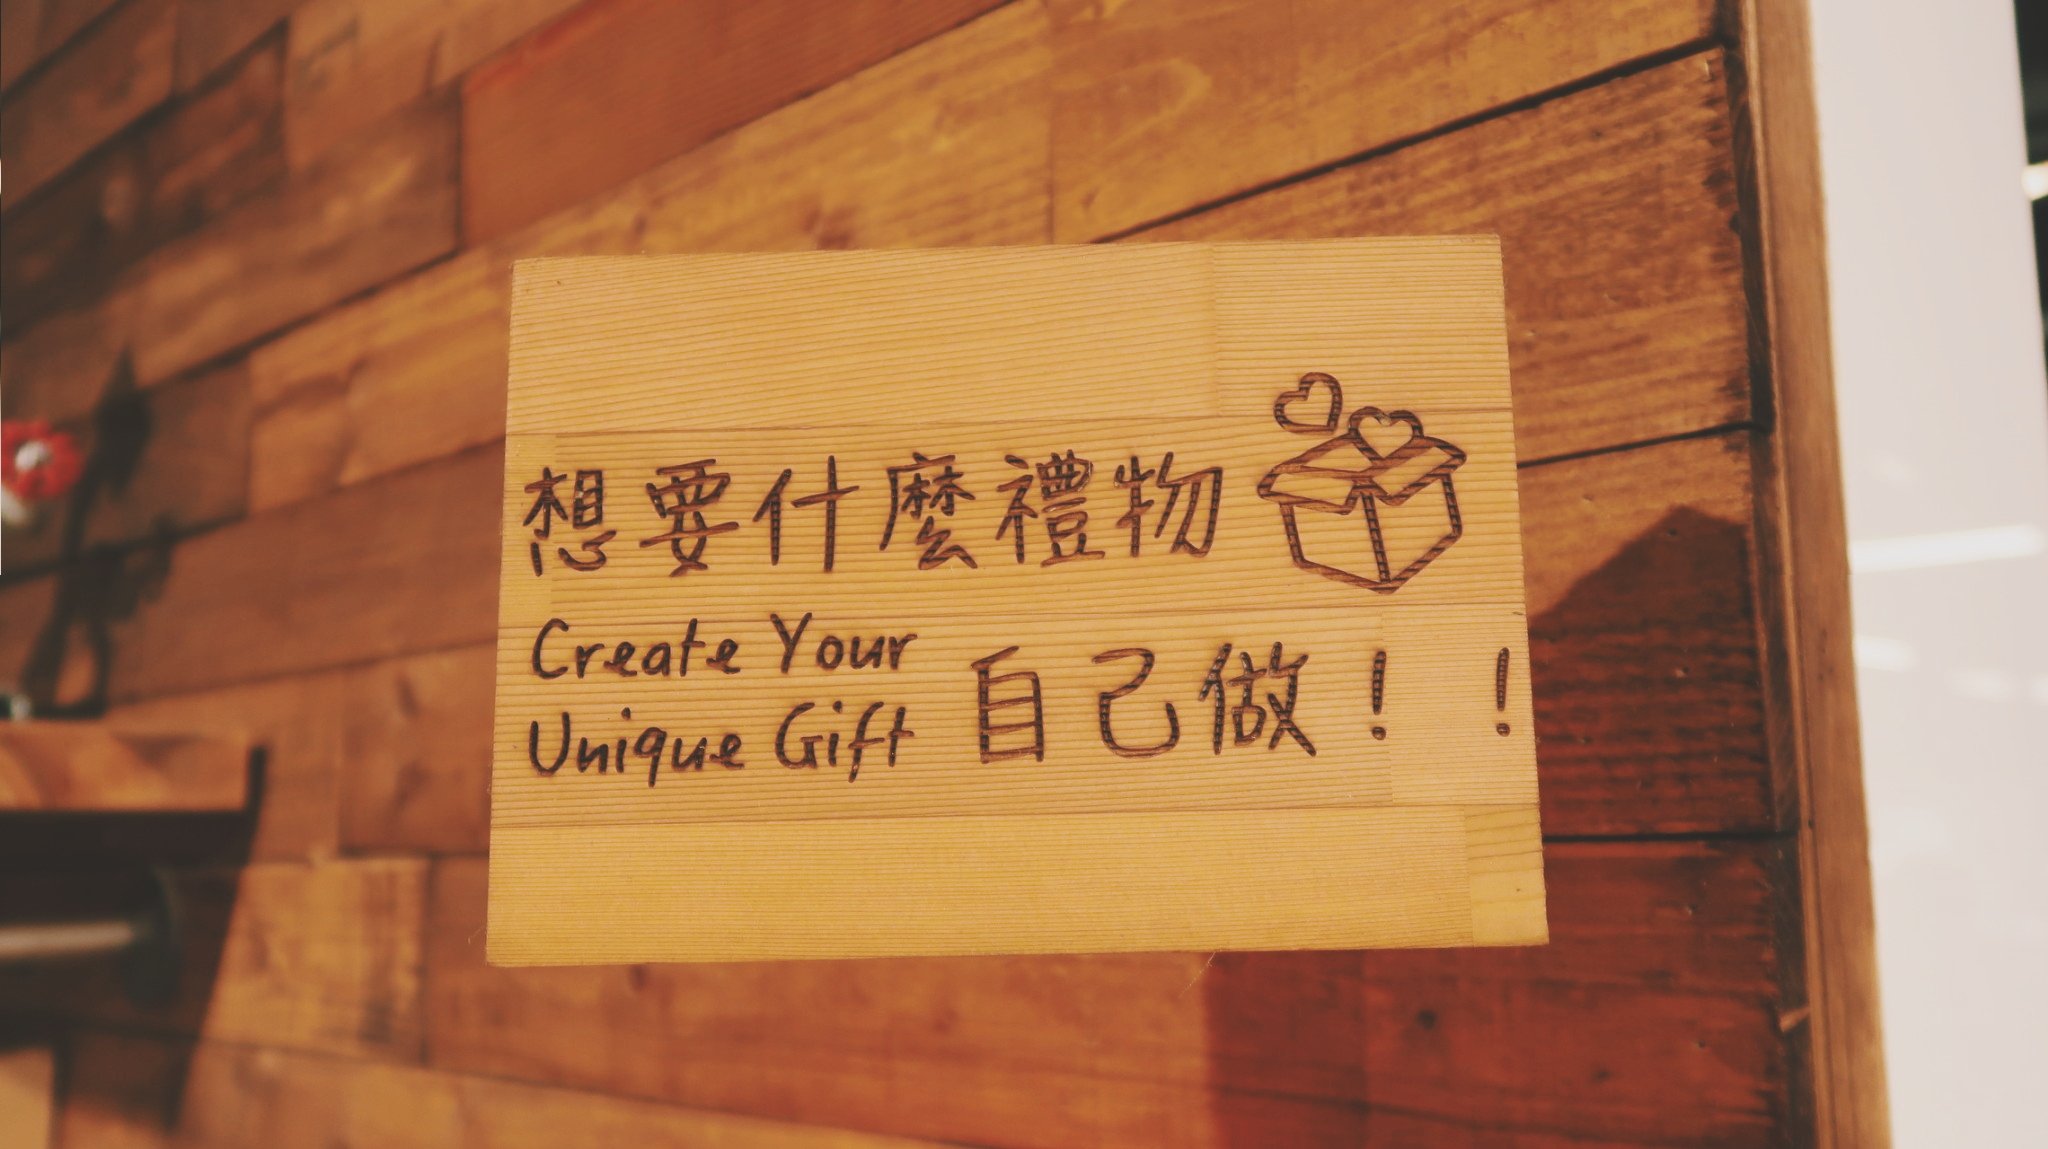 想要什麼禮物
Create Your
Unique Gift
自己做！！